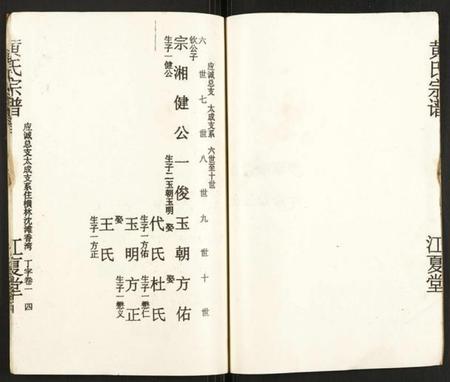 黄氏宗谱
江夏堂
应诚总支 太成支系 六世至十世
六世 七世 八世 九世 十世
宗湘 健公 一俊 玉朝 方佑
钦公子
生子一健公
生子二玉朝玉明
娶代氏
生子一方佑
娶杜氏
生子一懋仁
玉明 方正
娶王氏
生子一方正
生子一懋义
黄氏宗谱
应诚总支太成支系住横林沈滩香湾 丁字卷一 四
江夏堂